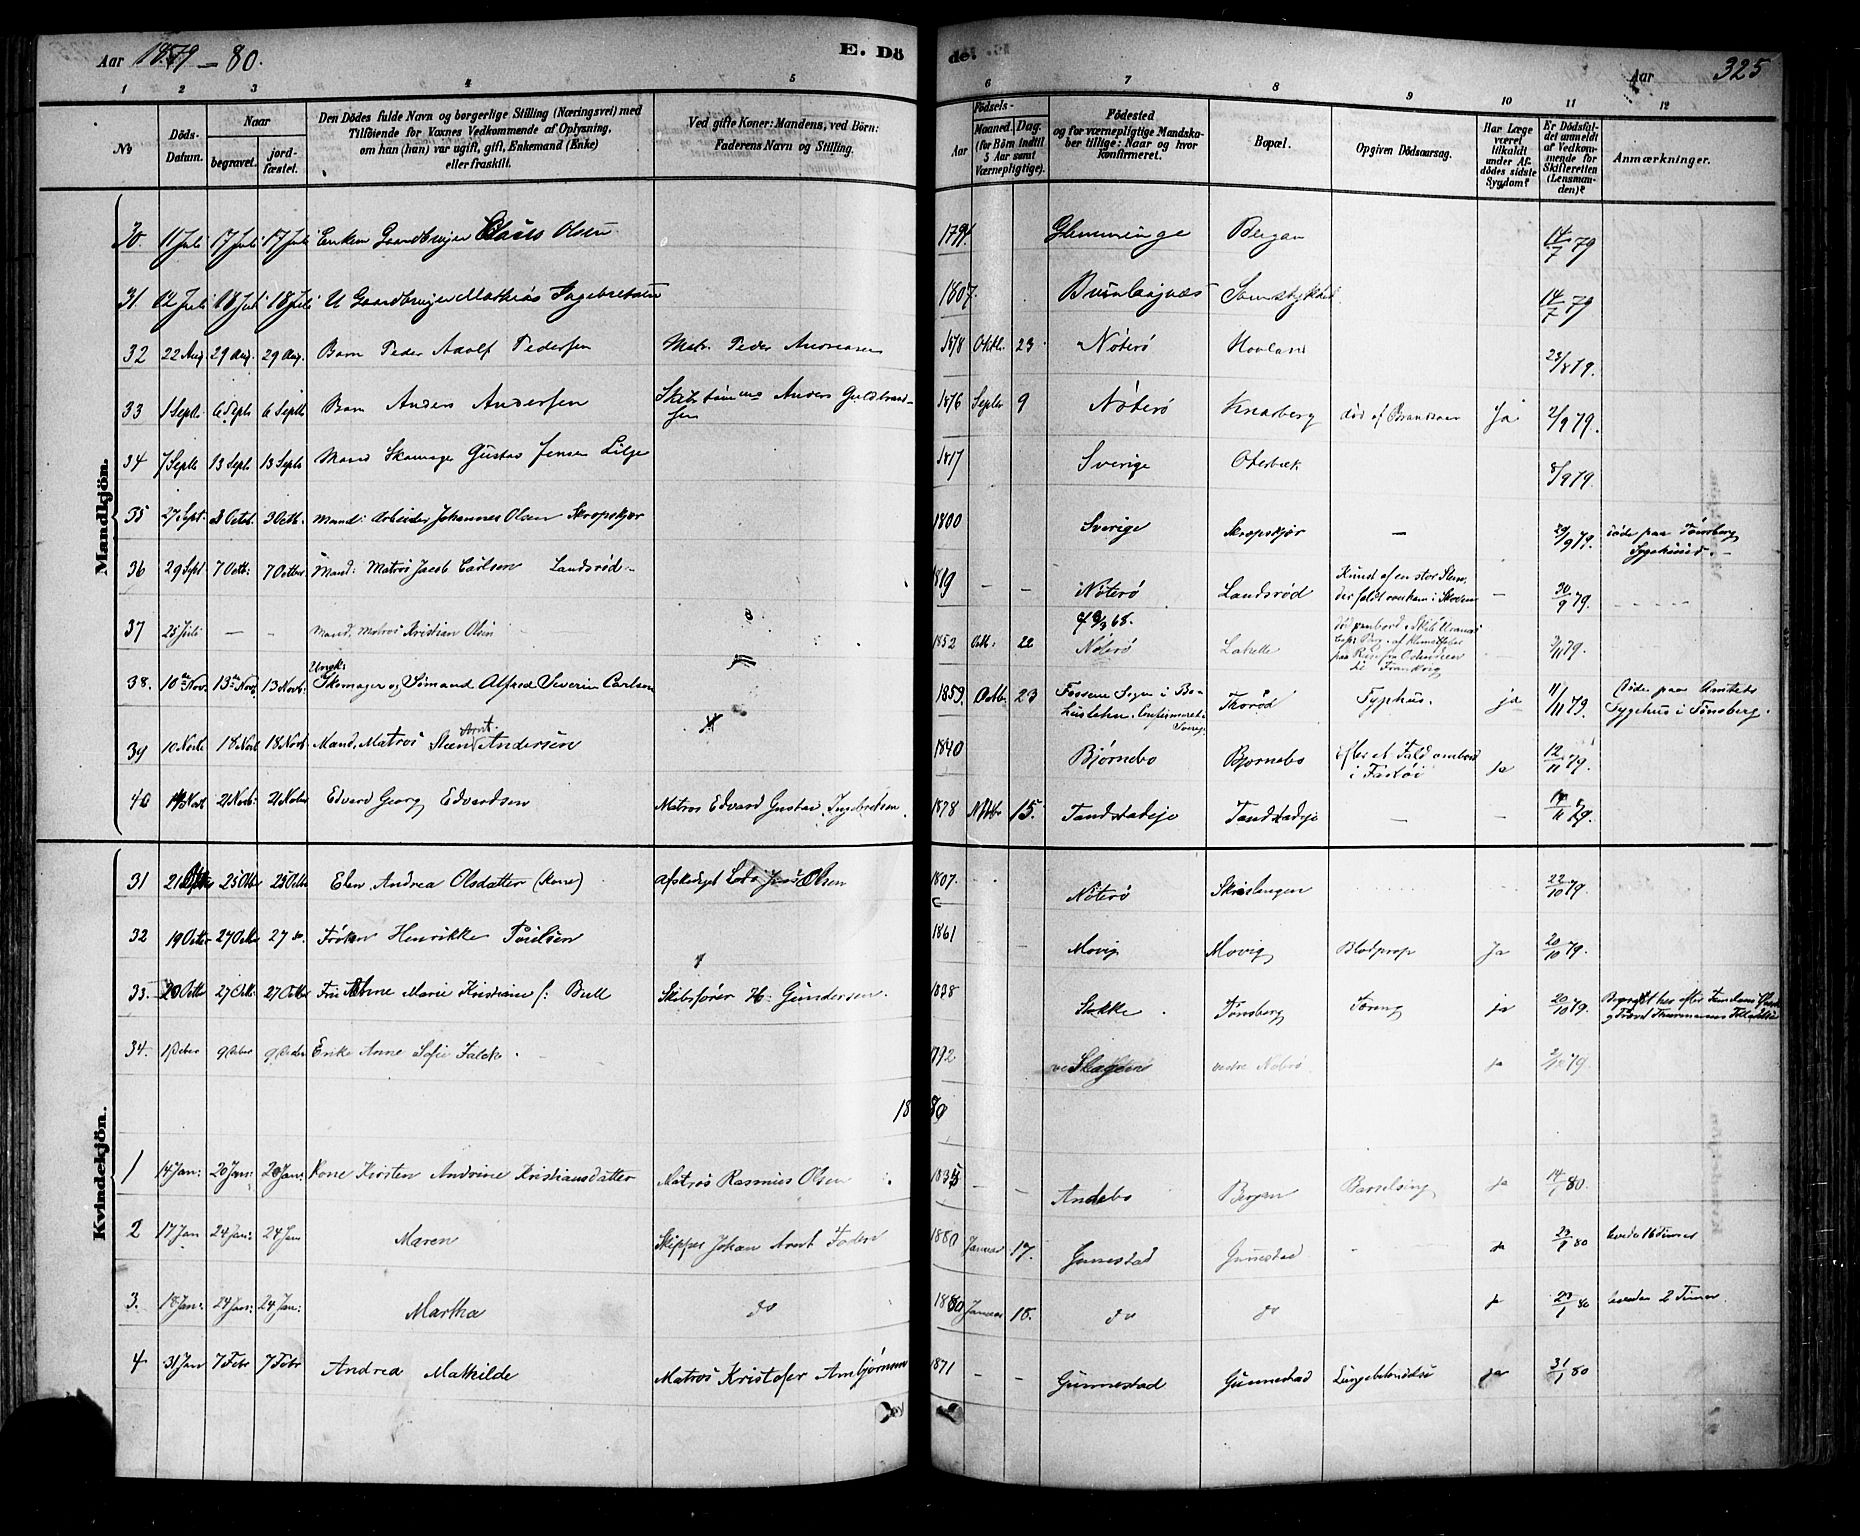 Aar 1879-80.
E. Dö
de.
Aar
325
1 2 3 4 5 6 7 8 9 10 11 12
No
Döds-Datum.
Naar
begravet.
jord-fæstet.
Den Dödes fulde Navn og borgerlige Stilling (Næringsvei) med
Tilföiende for Voxnes Vedkommende af Oplysning,
om han (hun) var ugift, gift, Enkemand (Enke)
eller fraskilt.
Ved gifte Koner: Mandens, ved Börn:
Faderens Navn og Stilling.
Födsels-
Aar
Maaned. Dag.
(for Börn indtil
5 Aar samt
Værnepligtige).
Födested
og for værnepligtige Mandska-
ber tillige: Naar og hvor
konfirmeret.
Bopæl.
Opgiven Dödsaarsag.
Har Læge
været
tilkaldt
under Af-
dödes sidste
Sygdom?
Er Dödsfal-
det anmeldt
af Vedkom-
mende for
Skifteretten
(Lensman-
den)?
Anmærkninger.
Mandkjön.
30. 11 Juli 17 Juli 17 Juli Enkem Gaardbruger Claus Olsen 1794 Glemminge Bergan 14/7 79
31. 12 Juli 18 Juli 18 Juli Gaardbruger Mathias Ingebretsen 1807. 14/7 79
32 22 Aug 29 Aug. 29 Aug. Barn Peder Adolf Pedersen Matr. Peder Andreasen 1878 Oktb. 23 Nöterö Hovland 23/8 79.
33 1 Septb. 6 Septb 6 Septb Barn Anders Andersen Anders Guldbrand-
sen 1876 Septbr 9 Nöterö Knarberg död af Ja 2/9 79.
34 7 Septb 13 Septb 13 Septb Mand Skomager Gustav Jensen Lilje 1817 Sverige Oterbæk 8/9 79.
35 27 Sept. 3 Octob. 3 Octb. Mand: Arbeider Johannes Olsen Skropskjær 1800 Sverige Skropskjær — 29/9 79. döde paa Tönsberg
Sygehuus.
36 29 Sept 7 Octb: 7 Octber Mand: Matros Jacob Carlsen Landsröd 1819 Nöterö Landsröd Knust af en stor Steen
der faldt over ham i Skoven — 30/9 79.
37 25 Juli — — Mand, Matros Kristian Olsen 1852 Octb: 22 Nöterö
38. 10de Nov. 13de Nov. 13 Novb: Ungk: Skomager og Sömand Alfred Severin Carlsen 1859. Octb. 23 Thoröd Typhus. ja 11/11 79. Döde paa Amtets
Sygehus i Tönsberg.
39 10 Novb 18 Novb 18 Novb Mand, Matros Steen Arnt Andersen 1840 Björnebo Bjornebo efter et Fald ombord
ja 12/11 79.
40 21 Novb: 21 Novbr Edvard Georg Edvardsen Matros Edvard Gustav Ingebretsen 1878 15. — —
Kvindekjön.
31 25 Octb 25 Octb Elen Andrea Olsdatter (Kone) Afskediget Lods Jens Olsen 1807. Nöterö 22/10 79.
32 19 Octbr 27 Octbr 27 do Fröken Henrikke Poulsen 1861 Movig Movig Blodprop Ja 20/10 79.
33. 20 Octb 27 Octb: 27 Octbr Fru Anne Marie Kristiane f: Bull Skibsförer H. Gundersen 1838 Stokke Tönsberg Tæring ja 20/10 79.
34. 9 Decbr 9 Decbr Enke Anne Sofie Falck 1792 ja
1880
1 14 Jan: 20 Jan: 20 Jan: Kone Kirsten Andrine Kristiansdatter Matros Rasmus Olsen 1835 — — Andebo Bergan Barselseng ja 14/1 80.
2 17 Jan 24 Jan: 24 Jan Maren Skipper Johan Arnt Foden 1880 Januar 17. Gunnestad Gunnestad ja 23/1 80 levede 16 Timer
3. 18 Jan: 24 Jan: 24 Jan: Martha do 1880 Januar 18. do do ja 23/1 80 levede 2 Timer
4 31 Jan 7 Febr 7 Febr Andrea Mathilde Matros Kristofer Arnbjörnsen 1871 — — Gunnestad Gunnestad Lungebetændelse ja 31/1 80